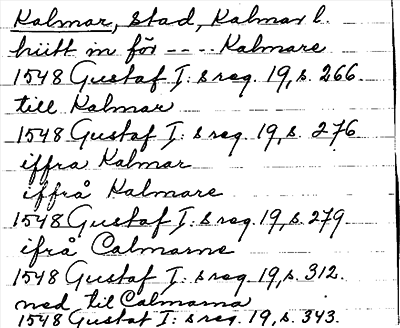 Kalmar, stad, Kalmar l.
hütt in för ---- Kalmare
1548 Gustaf I:s reg. 19, s. 266.
till Kalmar
1548 Gustaf I:s reg. 19, s. 276
iffra Kalmar
iffrå Kalmare
1548 Gustaf I:s reg. 19, s. 279
ifrå Calmarne
1548 Gustaf I:s reg. 19, s. 312.
ned til Calmarna
1548 Gustaf I:s reg. 19, s. 343.